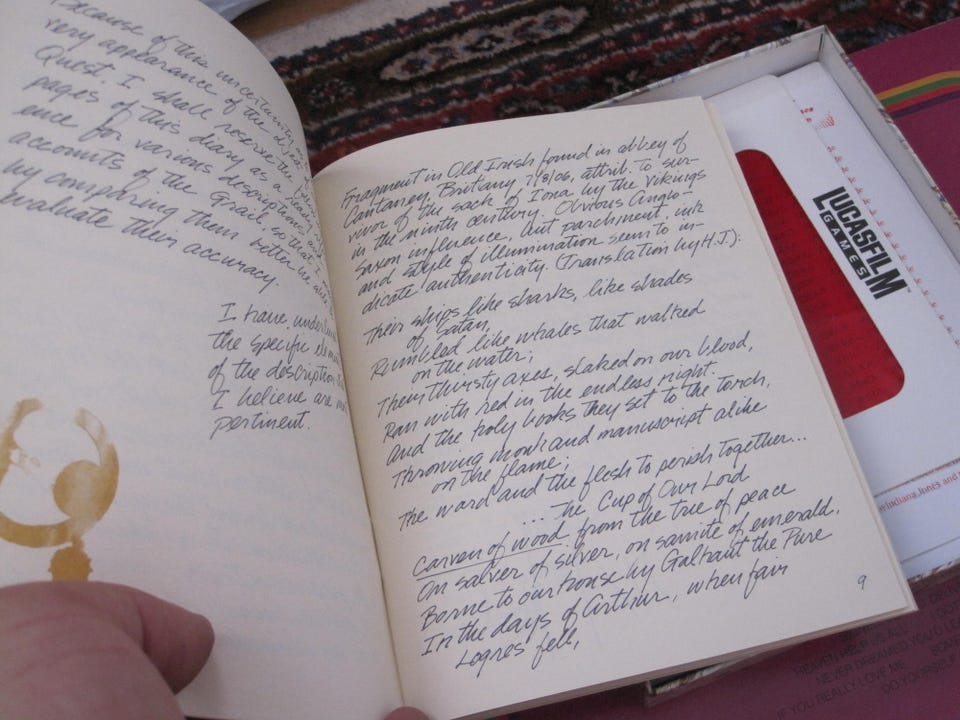 Because of this uncertainty
very appearance of the
Quest, I shall reserve the
pages of this diary as a ready
ence for various descriptions
accounts of the Grail, so that I
by comparing them better be able
evaluate their accuracy.
I have
the specific
of the description
I believe are
pertinent.
Fragment in Old Irish found in abbey of
Cantanez, Brittany, 7/8/06, attrib. to sur-
vivor of the sack of Iona by the Vikings
in the ninth century. Obvious Anglo-
Saxon influence, but parchment, ink
and style of illumination seem to in-
dicate authenticity. (Translation by H.J.):
Their ships like sharks, like shades
of Satan,
Rumbled like whales that walked
on the water;
Their thirsty axes, slaked on our blood,
Ran with red in the endless night.
And the holy books they set to the torch,
Throwing monk and manuscript alike
on the flame;
The word and the flesh to perish together...
... The Cup of Our Lord
Carven of wood from the tree of peace
On salver of silver, on samite of emerald,
Borne to our house by Galhaut the Pure
In the days of Arthur, when fair
Logres fell,
9
LUCASFILM
GAMES
Indiana Jones and
NEVER DREAMED YOU'D
IF YOU REALLY LOVE ME
DO YOURSELF